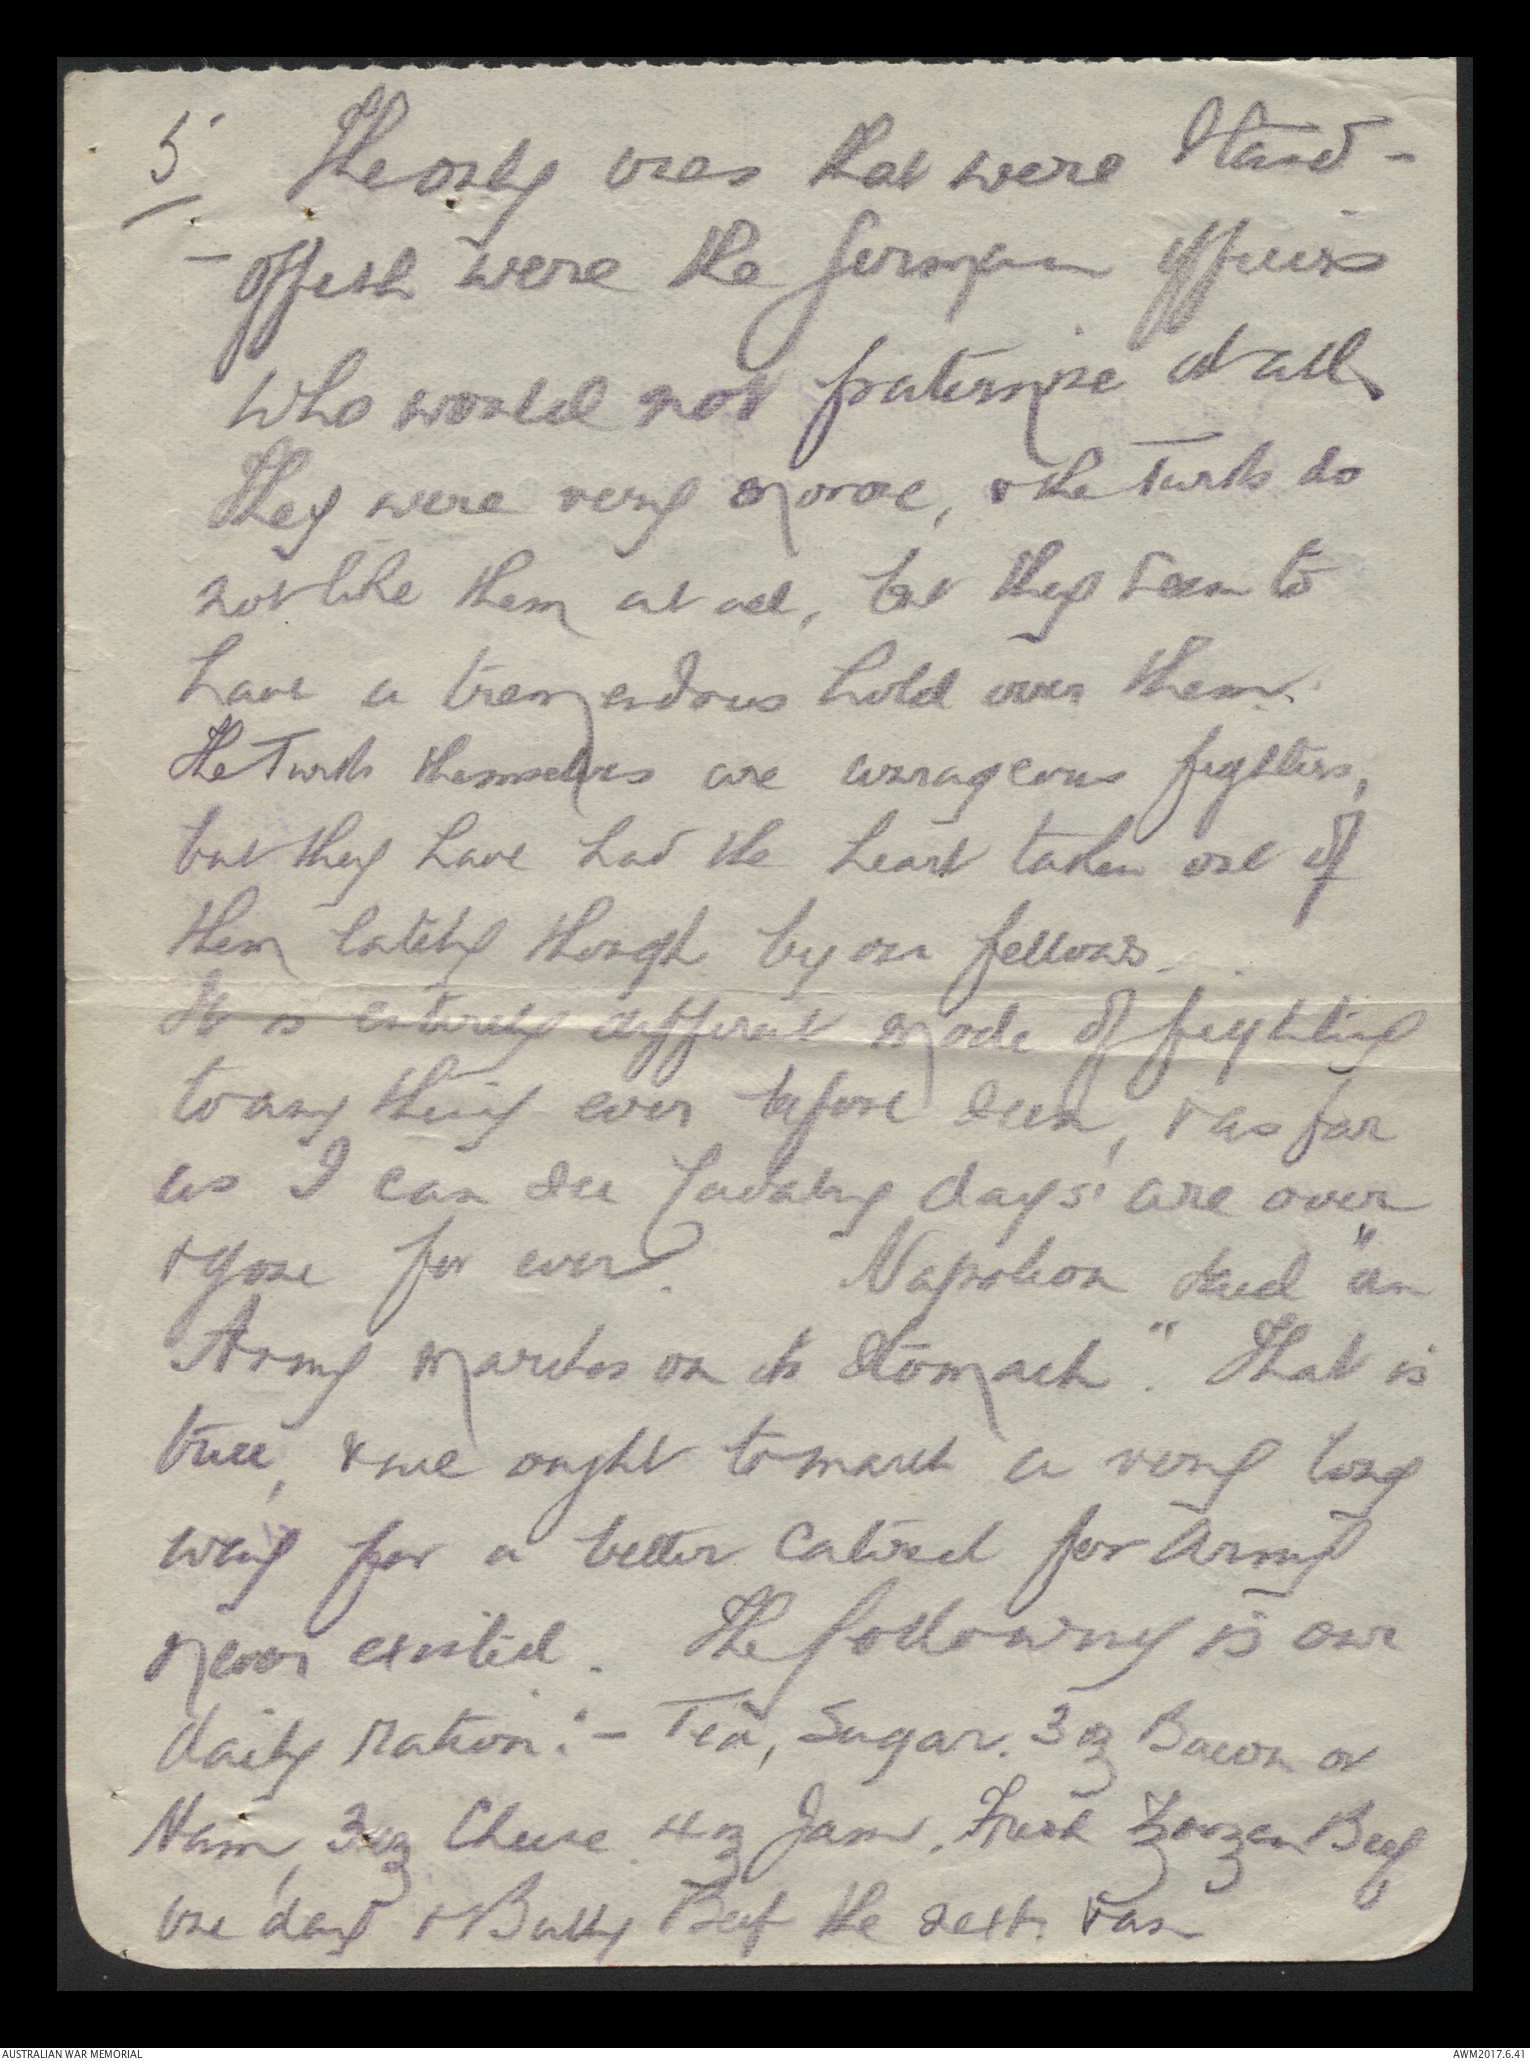 5
The only ones that were Stand-
-offish were the German officers
who would not fraternise at all,
They were very morose, & the Turks do
not like them at all, but they seem to
have a tremendous hold over them.
The Turks themselves are courageous fighters,
but they have had the heart taken out of
them lately though by our fellows.
It is entirely different mode of fighting
to anything ever before seen, & as far
as I can see Cavalry days' are over
& gone for ever. Napoleon said "an
Army marches on its stomach". That is
true, & we ought to march a very long
way for a better catered for Army
never existed. The following is our
daily ration:- Tea, Sugar. 3 oz Bacon or
Ham, 3 oz Cheese. 4 oz Jam, Fresh Frozen Beef
one day & Bully Beef the next. & an
AUSTRALIAN WAR MEMORIAL
AWM2017.6.41